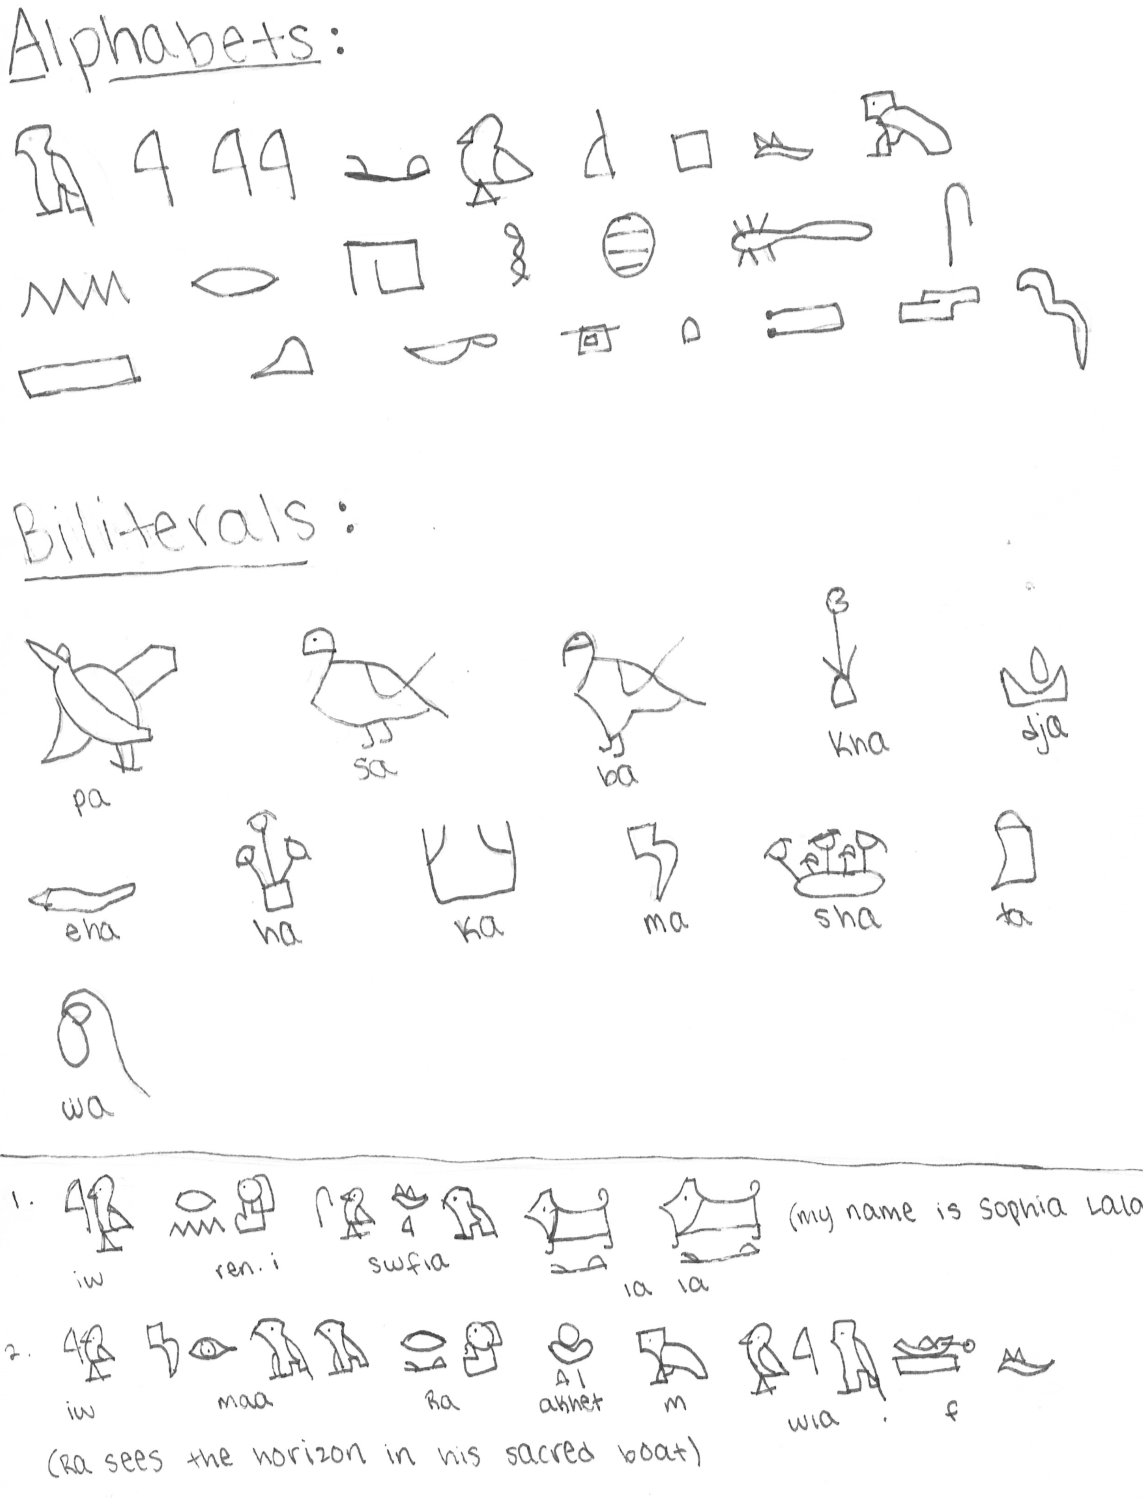 Alphabets:
Biliterals:
pa sa ba kha dja
eha ha ka ma sha ta
wa
1. (my name is Sophia Lala
iw ren.i swfia la la
2.
iw maa Ra akhet m wia . f
(Ra sees the horizon in his sacred boat)